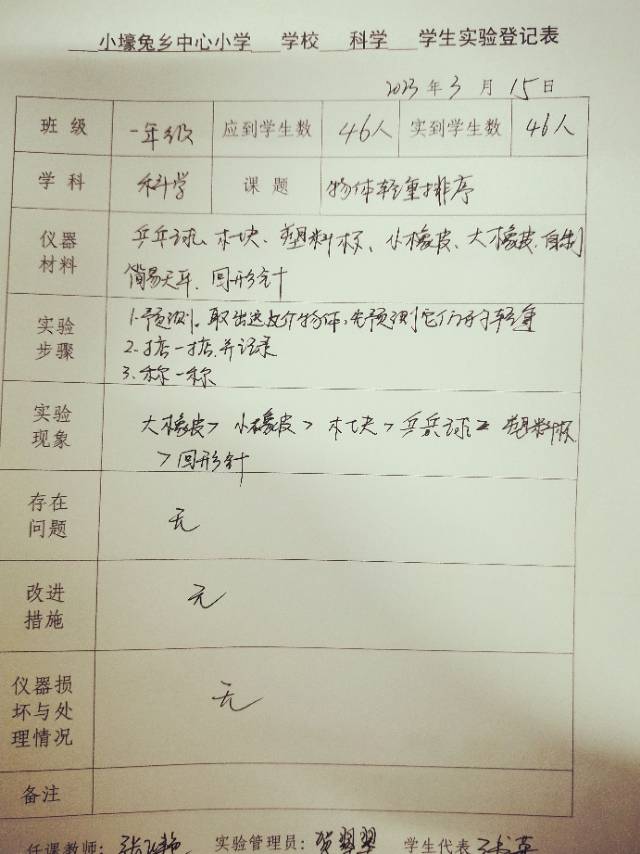 小壕兔乡中心小学 学校 科学 学生实验登记表
2023年3月15日
班级 一年级 应到学生数 46人 实到学生数 46人
学科 科学 课题 物体轻重排序
仪器材料 乒乓球、木块、塑料杯、小橡皮、大橡皮、自制
简易天平、回形针
实验步骤 1.预测。取出这几个物体,先预测它们的轻重
2.掂一掂,并记录
3.称一称
实验现象 大橡皮> 小橡皮 > 木块 > 乒乓球 = 塑料杯
> 回形针
存在问题 无
改进措施 无
仪器损坏与处理情况 无
备注
任课教师: 实验管理员: 贺翠翠 学生代表